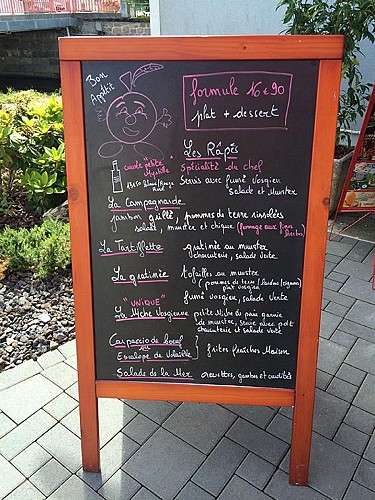 Bon
Appétit
formule 16€90
plat + dessert
Les Râpés
Spécialité du chef
Servis avec fumé Vosgien
Salade et Munster
cuvée petite
Myrtille
Blanc/Rouge
Rosé
La Campagnarde
jambon grillé, pommes de terre rissolées
salade, munster et chique (fromage aux fines
herbes)
La Tartiflette gratinée au munster
charcuterie, salade verte
La gratinée tofailles au munster
(pommes de terre/lardons/oignons)
plat vosgien
fumé vosgien, salade verte
"UNIQUE"
La Miche Vosgienne petite Miche de pain garnie
de munster, servie avec pdt
charcuterie et salade verte
Carpaccio de boeuf
ou
Escalope de Volaille } frites fraîches Maison
Salade de la Mer crevettes, gambas et crudités